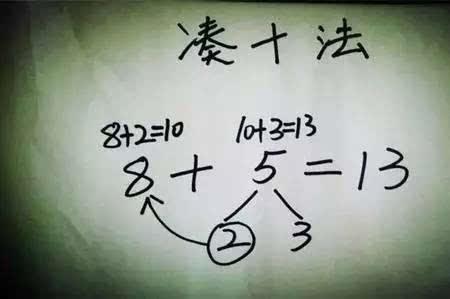 凑十法
8+2=10 10+3=13
8+5=13
2 3